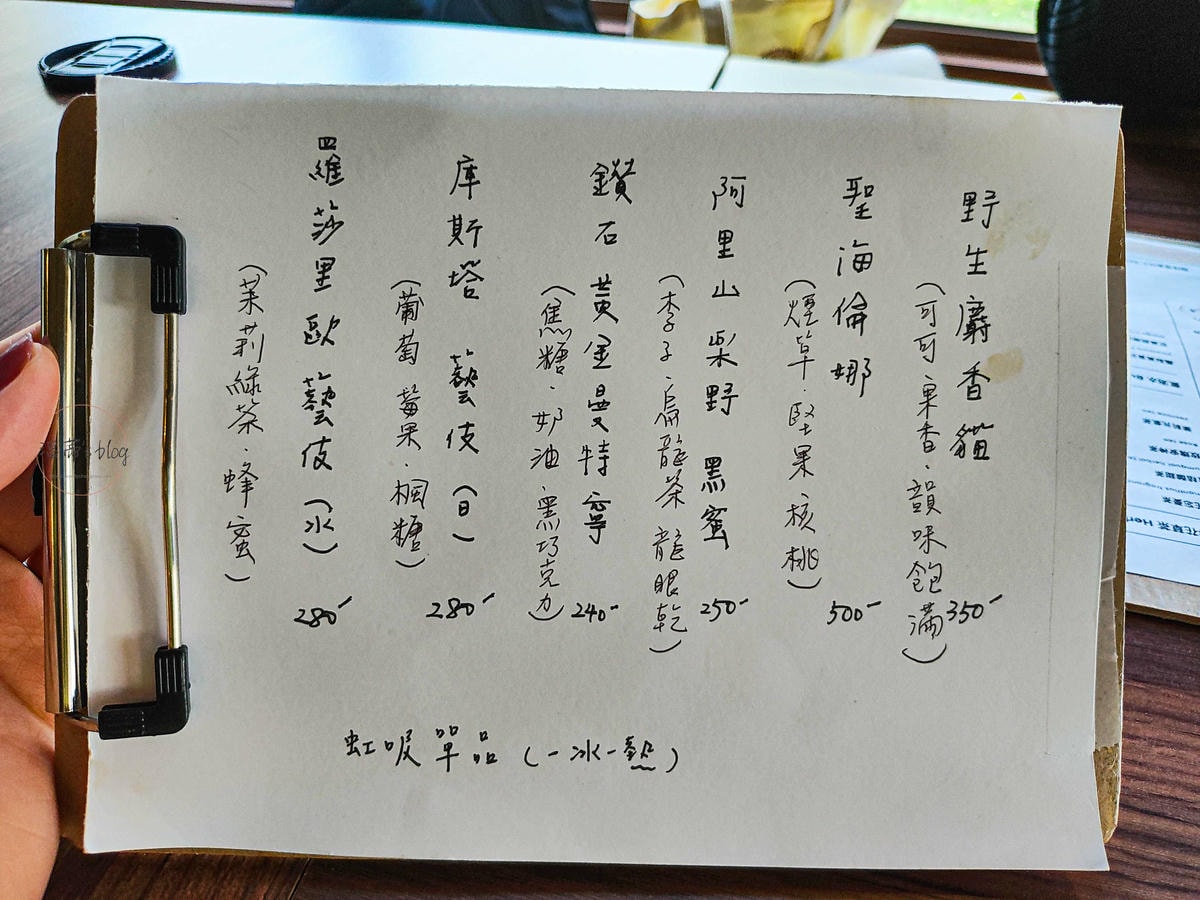 野生麝香貓 350
(可可.果香.韻味飽滿)
聖海倫娜 500
(煙草.堅果核桃)
阿里山 野 黑蜜 250
(李子.烏龍茶 龍眼乾)
鑽石黃金曼特寧 240
(焦糖.奶油.黑巧克力)
庫斯塔 藝伎 (日) 280
(葡萄 莓果.楓糖)
羅莎里歐 藝伎 (水) 280
(茉莉綠茶.蜂蜜)
虹吸單品 (一冰一熱)
blog